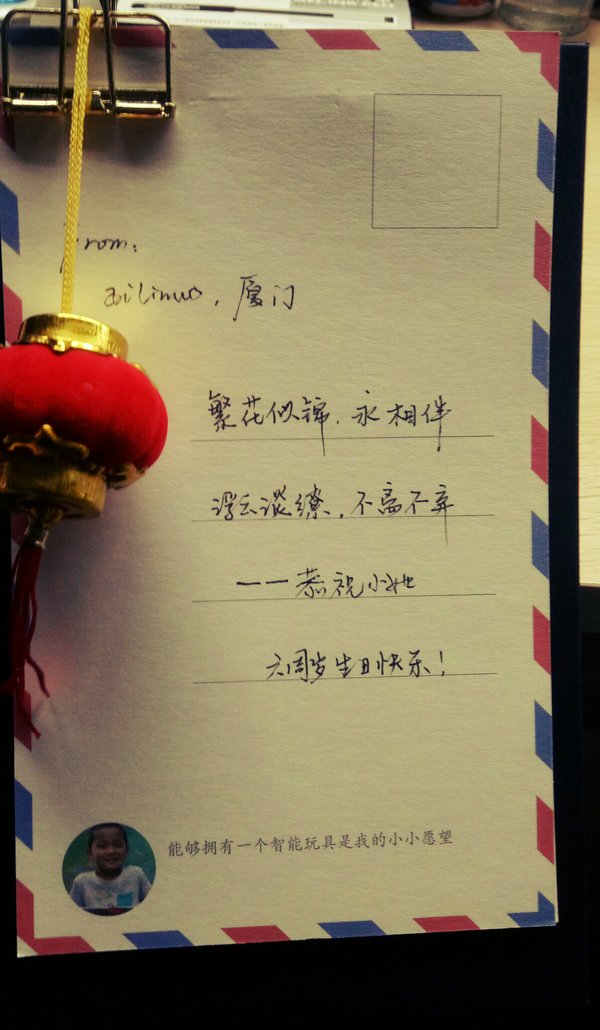 from:
厦门
繁花似锦，永相伴
浮云淡缭，不离不弃
——恭祝小她
六周岁生日快乐！
能够拥有一个智能玩具是我的小小愿望